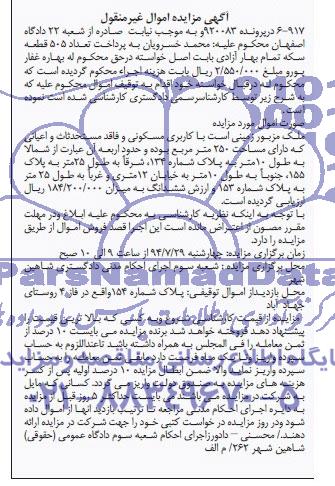 آگهی مزایده اموال غیرمنقول
۶-۹۱۷ درپرونده ۹۲۰۰۸۳و به موجب نیابت صادره از شعبه ۲۲ دادگاه
اصفهان محکوم علیه: محمد خسرویان به پرداخت تعداد ۵۰۵ قطعه
سکه تمام بهار آزادی بابت اصل خواسته درحق محکوم له بهاره غفار
پورو مبلغ ۲/۵۵۰/۰۰۰ ریال بابت هزینه اجراء محکوم گردیده است که
محکوم له درقبال خواسته خود اقدام به توقیف اموال محکوم علیه که
به شرح زیر توسط کارشناس رسمی دادگستری کارشناسی شده است نموده
است.
صورت اموال مورد مزایده
ملک مزبور زمینی است با کاربری مسکونی و فاقد مستحدثات و اعیانی
که دارای مساحت ۲۵۰ متر مربع بوده و حدود اربعه آن عبارت از شمالا
به طول ۱۰متر به پلاک شماره ۱۳۴، شرقاً به طول ۲۵متر به پلاک
۱۵۵، جنوباً به طول ۱۰متر به خیابان ۱۲متری و غرباً به طول ۲۵ متر
به پلاک شماره ۱۵۳ و ارزش ششدانگ به میزان ۱۸۴/۲۰۰/۰۰۰ ریال
ارزیابی گردیده است.
با توجه به اینکه نظریه کارشناسی به محکوم علیه ابلاغ ودر مهلت
مقرر مصون از اعتراض مانده است این اجرا قصد فروش اموال از طریق
مزایده را دارد.
زمان برگزاری مزایده: چهارشنبه ۹۴/۷/۲۹ از ساعت ۹ الی ۱۰ صبح
محل برگزاری مزایده: شعبه سوم اجرای احکام مدنی دادگستری شاهین
شهر
محل بازدیداز اموال توقیفی: پلاک شماره ۱۵۴ واقع در فاز۴ روستای
مزایده از قیمت کارشناسی شروع وبه کسی که بالا ترین قیمت را
پیشنهاد دهد فروخته خواهد شد برنده مزایده می بایست ۱۰ درصد از
ثمن معامله را فی المجلس به همراه داشته باشد تاعندالزوم به حساب
سپرده واریز
سپرده واریز نماید والا ضمن ابطال مزایده ۱۰ درصد اولیه پس از کسر
هزینه های مزایده به صندوق دولت واریز می گردد. کسانی که مایل
به شرکت در مزایده می باشند می بایست حداکثر ۵ روز قبل از مزایده
به دایره اجرای احکام مدنی مراجعه تا ترتیب بازدید انها از اموال داده
شود ودر روز مزایده در خواست کتبی خود را جهت شرکت در مزایده ارائه
دهند./ محسنی – دادورزاجرای احکام شعبه سوم دادگاه عمومی (حقوقی)
شاهین شهر ۲۶۲/ م الف